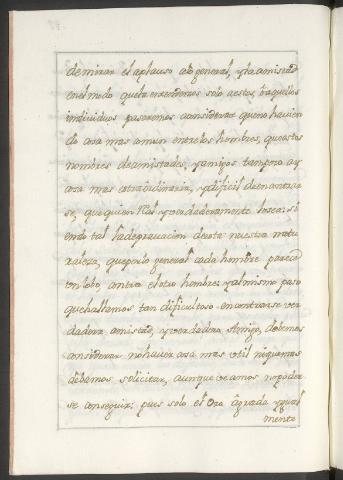 de mirar el aplauso ato general, y la amistad
en el modo que la extendemos solo a estos, ò aquellos
individuos pasaremos considerar que no havien
do cosa mas comun entre los hombres, que estos
nombres de amistades, y amigos tampoco ay
cosa mas extraordinaria, y dificil de encontrar
se, que quien Real y verdaderamente lo sea: si
endo tal la depravacion de esta nuestra natu
raleza, que por lo general cada hombre parece
un lobo contra el otro hombre y al mismo paso
que hallamos tan dificultoso encontrarse ver
dadera amistad, y verdadero Amigo, debemos
considerar no haver cosa mas util ni que mas
debamos solicitar, aunque veamos no poder
se conseguir; pues solo el Oza agrada ygual
mente